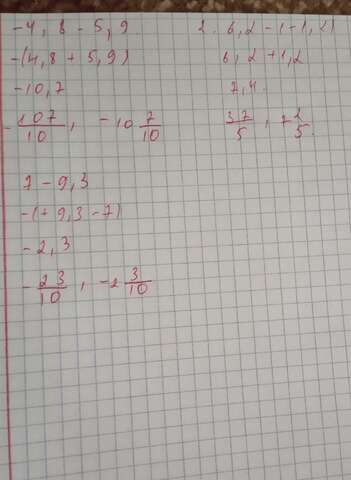 -4,8 - 5,9
-(4,8 + 5,9)
-10,7
-107/10, -10 7/10
2. 6,2-(-1,2)
6,2+1,2
7,4.
37/5, 7 2/5.
7-9,3
-(+9,3-7)
-2,3
-23/10, -2 3/10